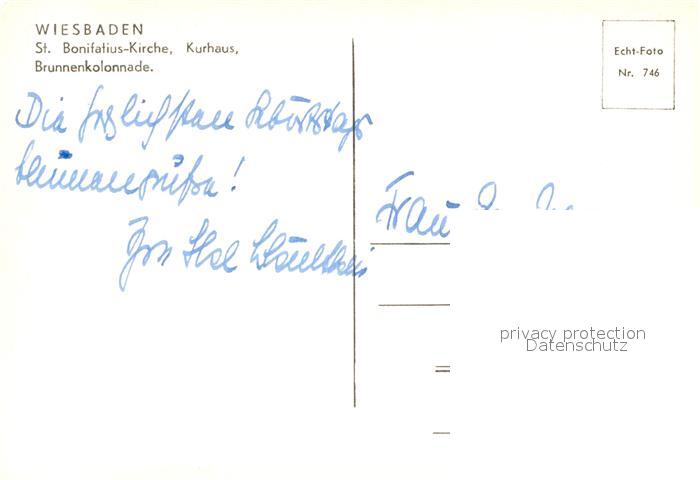 WIESBADEN
St. Bonifatius-Kirche, Kurhaus,
Brunnenkolonnade.
Echt-Foto
Nr. 746
Die herzlichsten Geburtstags
blumengrüße!
Frau
Ihre
privacy protection
Datenschutz